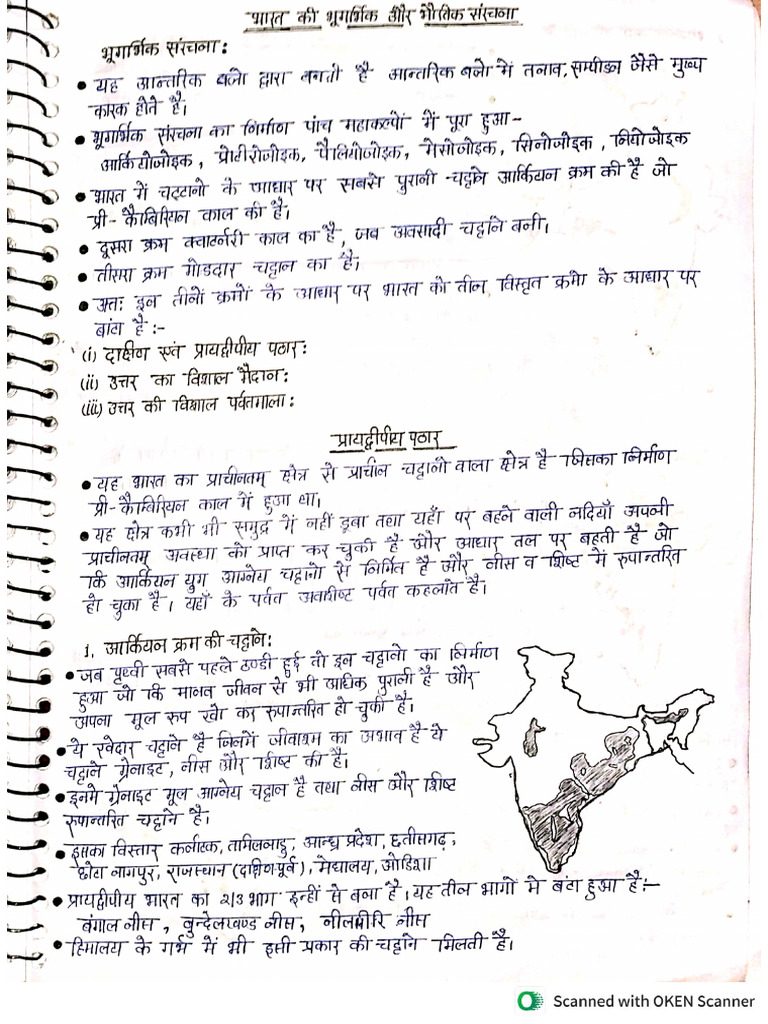 भारत की भूगर्भिक और भौतिक संरचना
भूगर्भिक संरचना:
• यह आन्तरिक बलो द्वारा बनती है आन्तरिक बलो में तनाव, सम्पीडन जैसे मुख्य
कारक होते है।
• भूगर्भिक संरचना का निर्माण पांच महाकल्पों में पूरा हुआ-
आर्कियोजोइक, प्रोटीरोजोइक, पैलियोजोइक, मेसोजोइक, सिनोजोइक, नियोजोइक
• भारत में चट्टानो के आधार पर सबसे पुरानी चट्टाने आर्कियन क्रम की है जो
प्री-कैंब्रियन काल की है।
• दूसरा क्रम क्वार्टनरी काल का है, जब अवसादी चट्टाने बनी।
• तीसरा क्रम गोडदार चट्टान का है।
• अतः इन तीनों क्रमों के आधार पर भारत को तीन विस्तृत क्रमो के आधार पर
बांटा है :-
(i) दाक्षीण एवं प्रायद्वीपीय पठार:
(ii) उत्तर का विशाल मैदान:
(iii) उत्तर की विशाल पर्वतमाला:
प्रायद्वीपीय पठार
• यह भारत का प्राचीनतम् क्षेत्र से प्राचीन चट्टानो वाला क्षेत्र है जिसका निर्माण
प्री-कैम्ब्रियन काल में हुआ था।
• यह क्षेत्र कभी भी समुद्र में नहीं डूबा तथा यहाँ पर बहने वाली नदियाँ अपनी
प्राचीनतम् अवस्था को प्राप्त कर चुकी है और आधार तल पर बहती है जो
कि आर्कियन युग आग्नेय चट्टानो से निर्मित है और नीस व शिष्ट में रुपान्तरित
हो चुका है। यहाँ के पर्वत अवशिष्ट पर्वत कहलाते है।
1. आर्कियन क्रम की चट्टाने:
• जब पृथ्वी सबसे पहले ठण्डी हुई तो इन चट्टानो का निर्माण
हुआ जो कि मानव जीवन से भी अधिक पुरानी है और
अपना मूल रुप खो कर रुपान्तरित हो चुकी है।
• ये रवेदार चट्टाने है जिनमें जीवाश्म का अभाव है ये
चट्टाने ग्रेनाइट, नीस और शिष्ट की है।
• इनमे ग्रेनाइट मूल आग्नेय चट्टान है तथा नीस और शिष्ट
रुपान्तरित चट्टाने है।
• इसका विस्तार कर्नाटक, तामिलनाडु, आन्ध्र प्रदेश, छत्तीसगढ़,
छोटा नागपुर, राजस्थान (दाक्षिणपूर्व), मेघालय, ओडिशा
• प्रायद्वीपीय भारत का 2/3 भाग इन्हीं से बना है। यह तीन भागों मे बंटा हुआ है:-
बंगाल नीस, बुन्देलखण्ड नीस, नीलगीरि नीस
• हिमालय के गर्भ में भी इसी प्रकार की चट्टाने मिलती है।
Scanned with OKEN Scanner